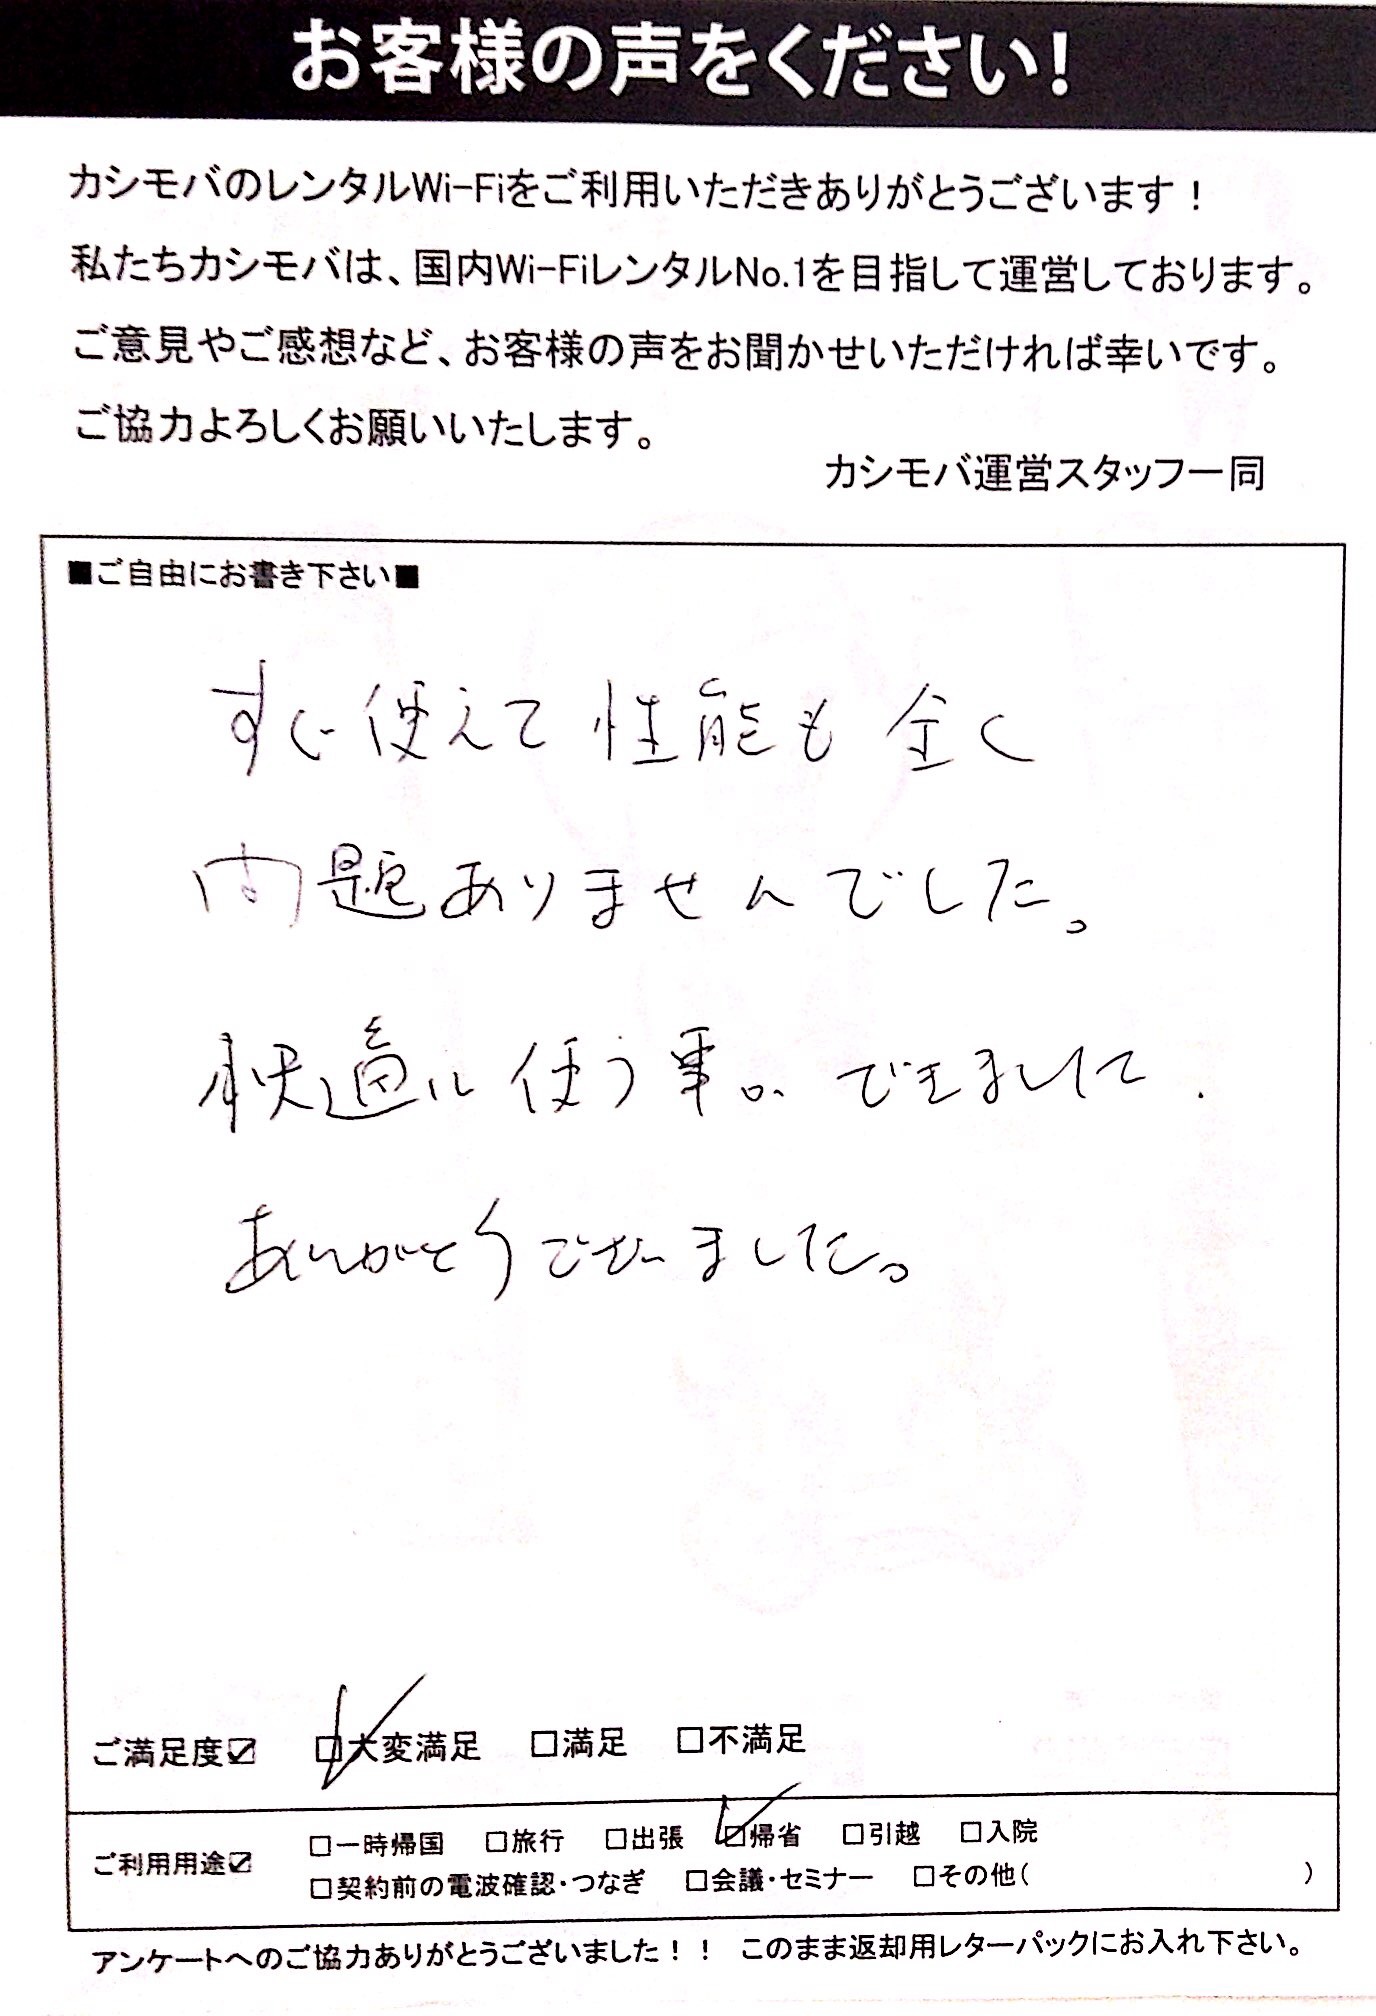 お客様の声をください!
カシモバのレンタルWi-Fiをご利用いただきありがとうございます！
私たちカシモバは、国内Wi-FiレンタルNo.1を目指して運営しております。
ご意見やご感想など、お客様の声をお聞かせいただければ幸いです。
ご協力よろしくお願いいたします。
カシモバ運営スタッフ一同
■ご自由にお書き下さい■
すぐ使えて性能も全く
問題ありませんでした。
快適に使う事ができまして
ありがとうございました。
ご満足度☑ ☑大変満足 □満足 □不満足
ご利用用途☑ □一時帰国 □旅行 □出張 ☑帰省 □引越 □入院
□契約前の電波確認・つなぎ □会議・セミナー □その他( )
アンケートへのご協力ありがとうございました！！ このまま返却用レターパックにお入れ下さい。